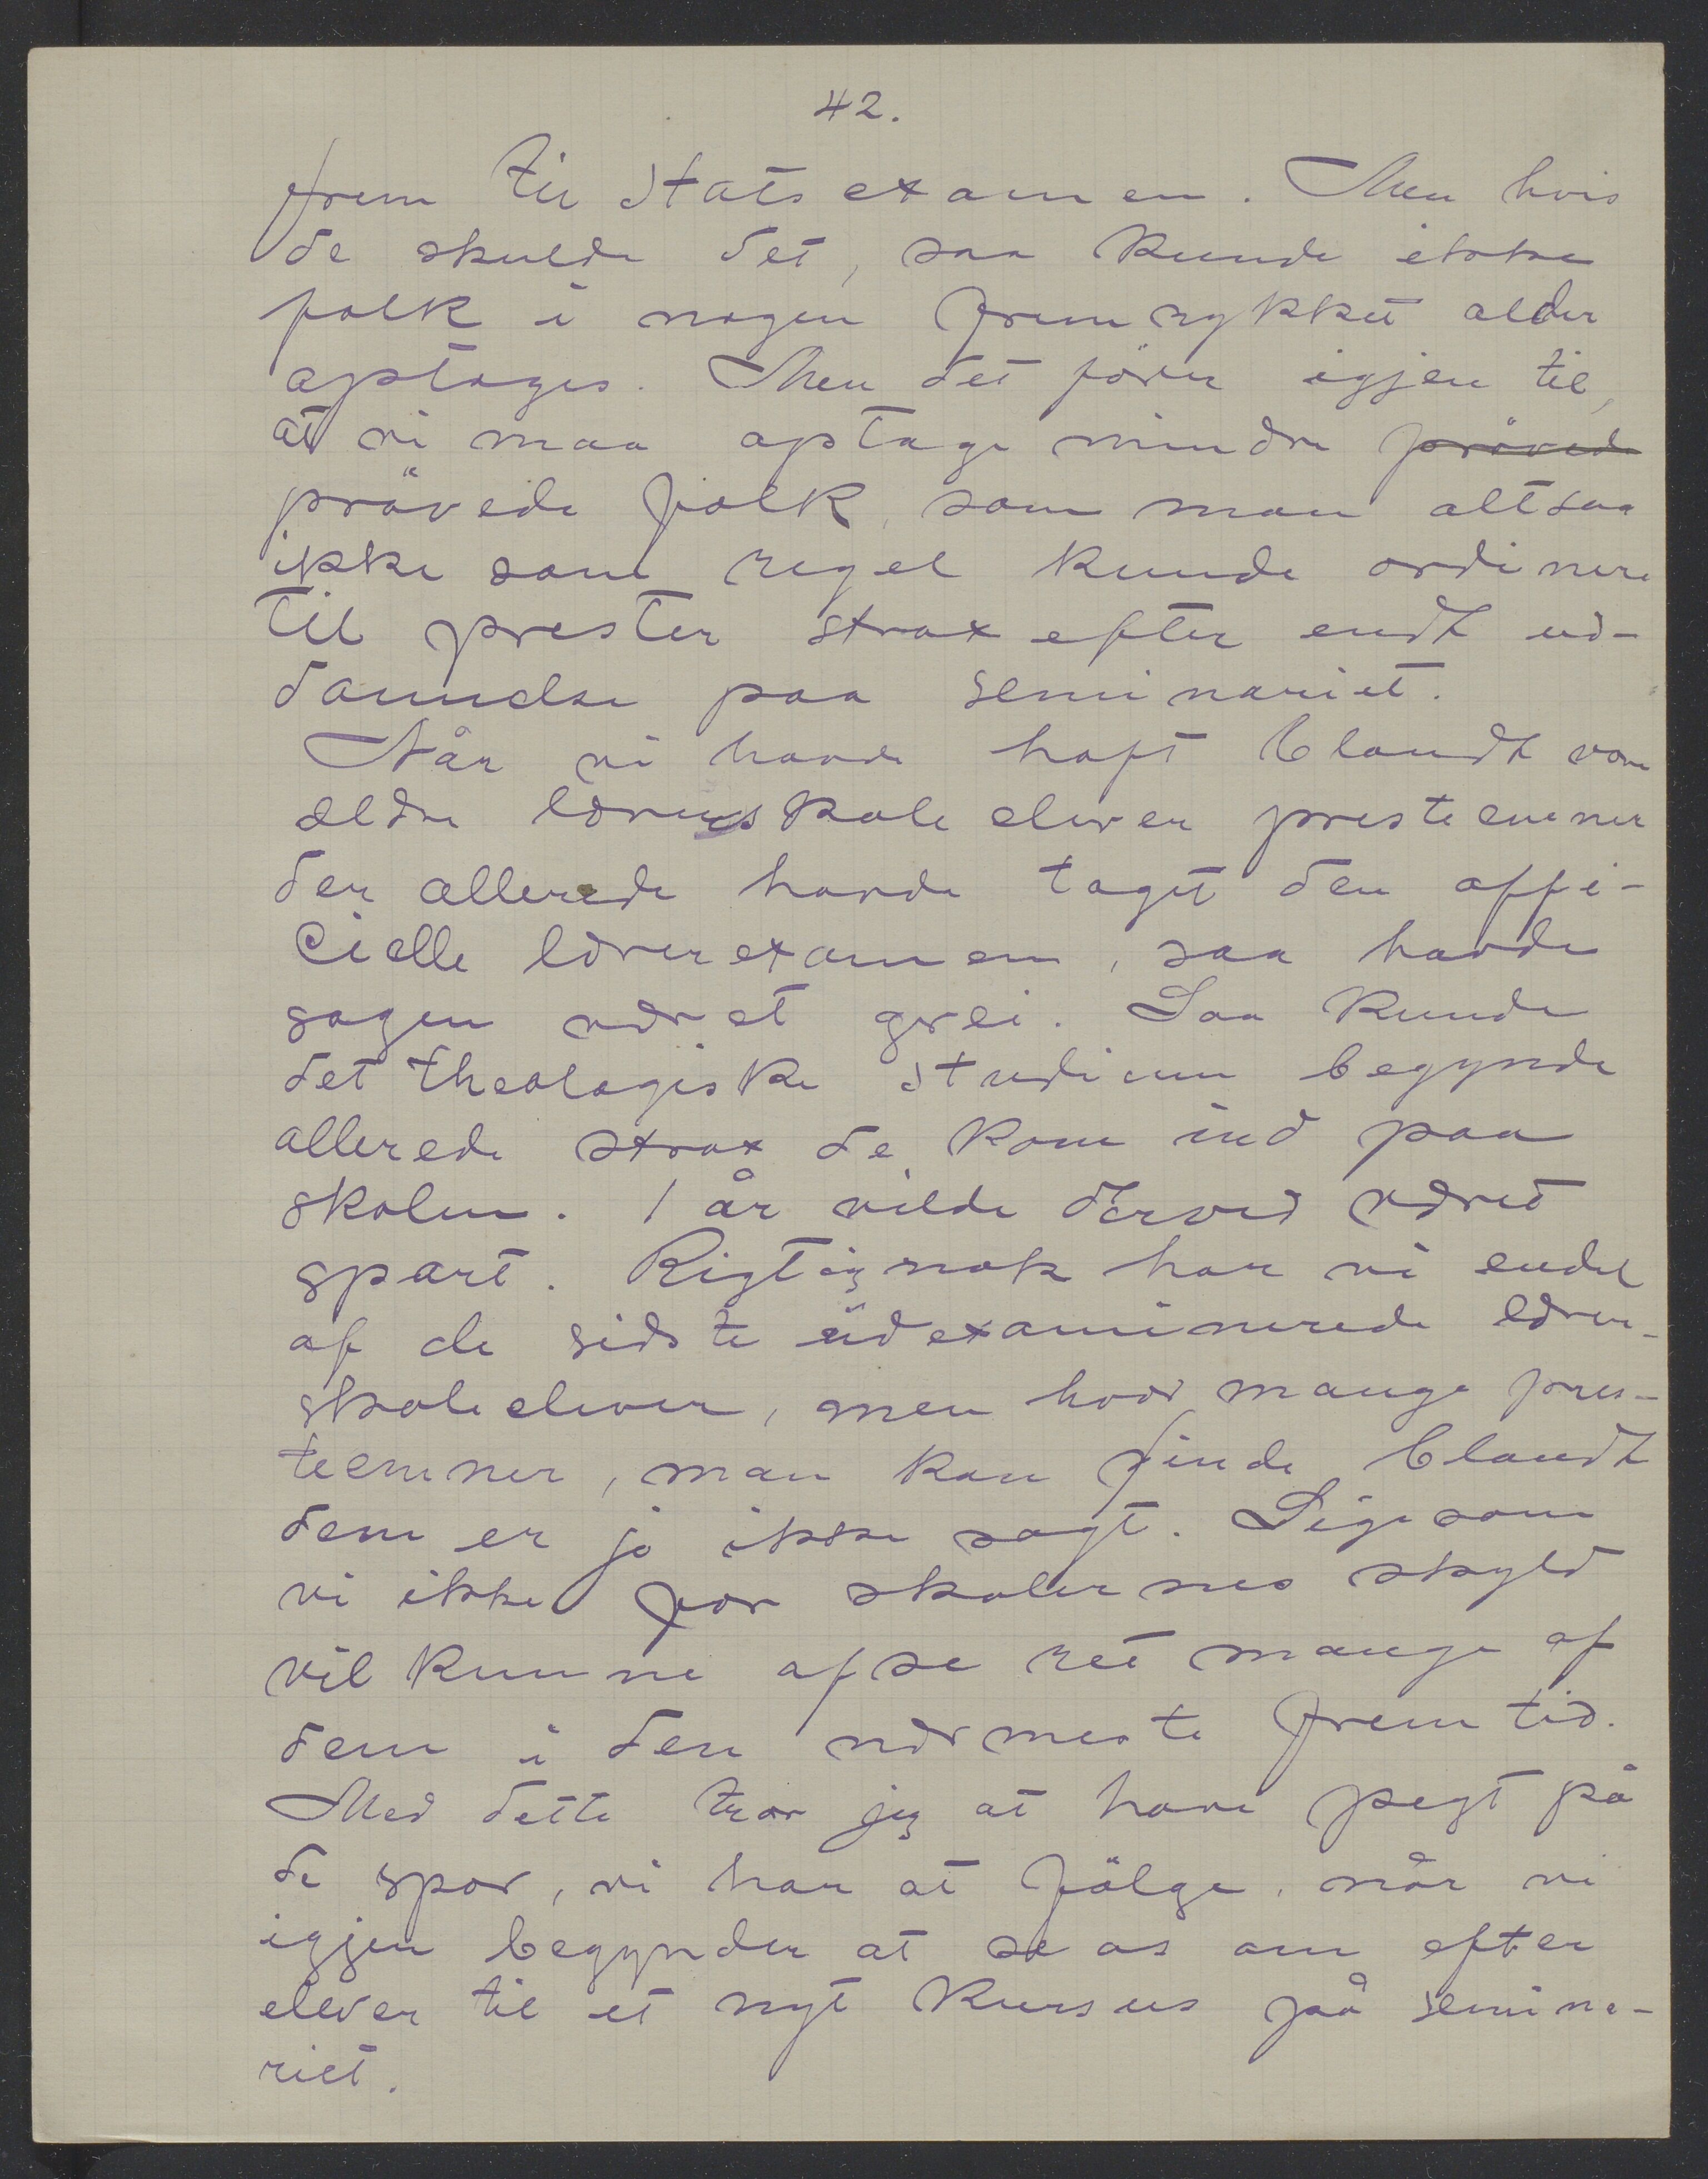 42.
frem til Statsexamen. Men hvis
de skulde det, saa kunde ikke
folk i nogen fremrykket alder
optages. Men det förer igjen til,
at vi maa optage mindre prövede
prövede folk, som man altsaa
ikke som regel kunde ordinere
til prester strax efter endt ud-
dannelse paa seminariet.
Når vi havde haft blandt vore
ældre lærerskoleelever presteemner
der allerede havde taget den offi-
cielle lærerexamen, saa havde
sagen været grei. Saa kunde
det theologiske studium begynde
allerede strax de kom ind paa
skolen. 1 år vilde derved været
spart. Rigtignok har vi endel
af de sidste udexaminerede lærer-
skoleelever, men hvor mange pres-
teemner, man kan finde blandt
dem er jo ikke sagt. Ligesom
vi ikke for skolernes skyld
vil kunne afse ret mange af
dem i den nærmeste fremtid.
Med dette tror jeg at have pegt på
de spor, vi har at fölge, når vi
igjen begynder at se os om efter
elever til et nyt kursus på semina-
riet.